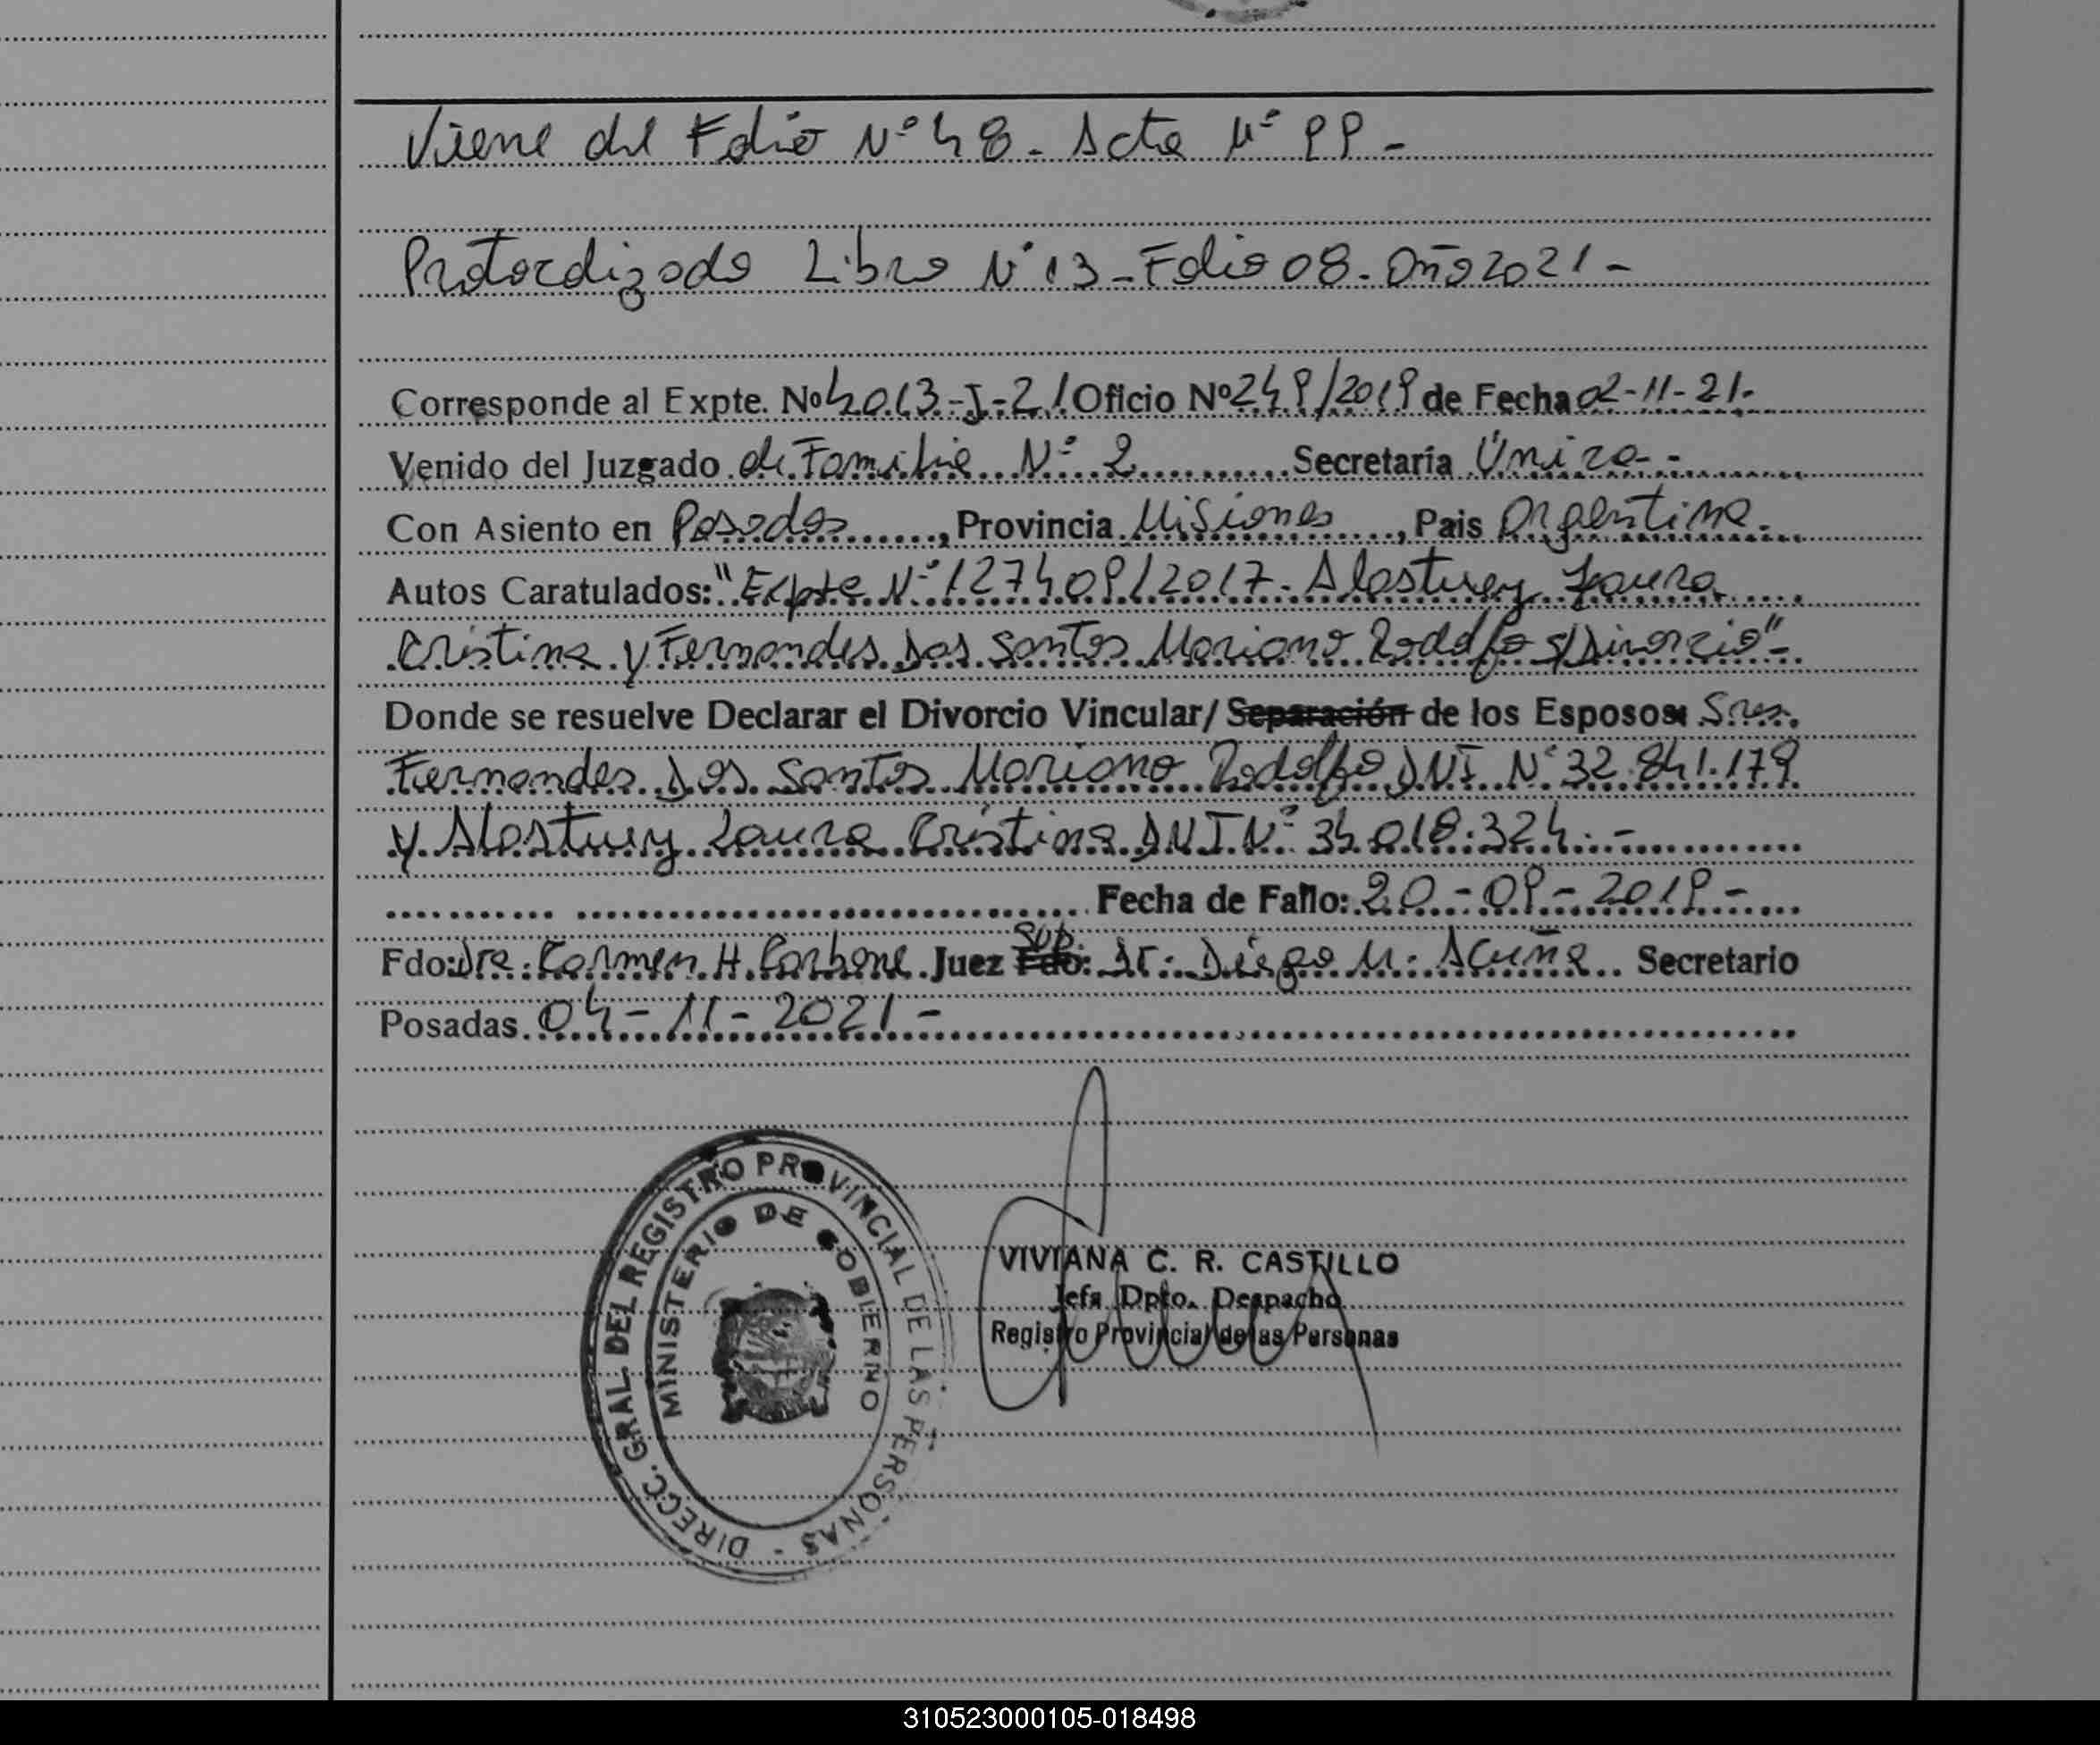 Viene del Folio Nº 48 - Acta Nº 99 -
Protocolizado Libro Nº 13 - Folio 08 - Año 2021 -
Corresponde al Expte. Nº 4013-J-21 Oficio Nº 249/2019 de Fecha 02-11-21.
Venido del Juzgado de Familia Nº 2 Secretaría Única -
Con Asiento en Posadas, Provincia Misiones, Pais Argentina.
Autos Caratulados: "Expte Nº 127409/2017 - Alostuey Laura
Cristina y Fernandes Dos Santos Mariano Rodolfo s/Divorcio" -
Donde se resuelve Declarar el Divorcio Vincular/ Separación de los Esposos: Sres.
Fernandes Dos Santos Mariano Rodolfo DNI Nº 32.841.179
y Alostuey Laura Cristina DNI Nº 34.018.324. -
Fecha de Fallo: 20-09-2019 -
Fdo: Dra. Carmen H. Carbone Juez Fdo: Sub. Dr. Diego M. Acuña Secretario
Posadas 04-11-2021 -
DIRECC. GRAL. DEL REGISTRO PROVINCIAL DE LAS PERSONAS -
MINISTERIO DE GOBIERNO
VIVIANA C. R. CASTILLO
Jefa Dpto. Despacho
Registro Provincial de las Personas
310523000105-018498